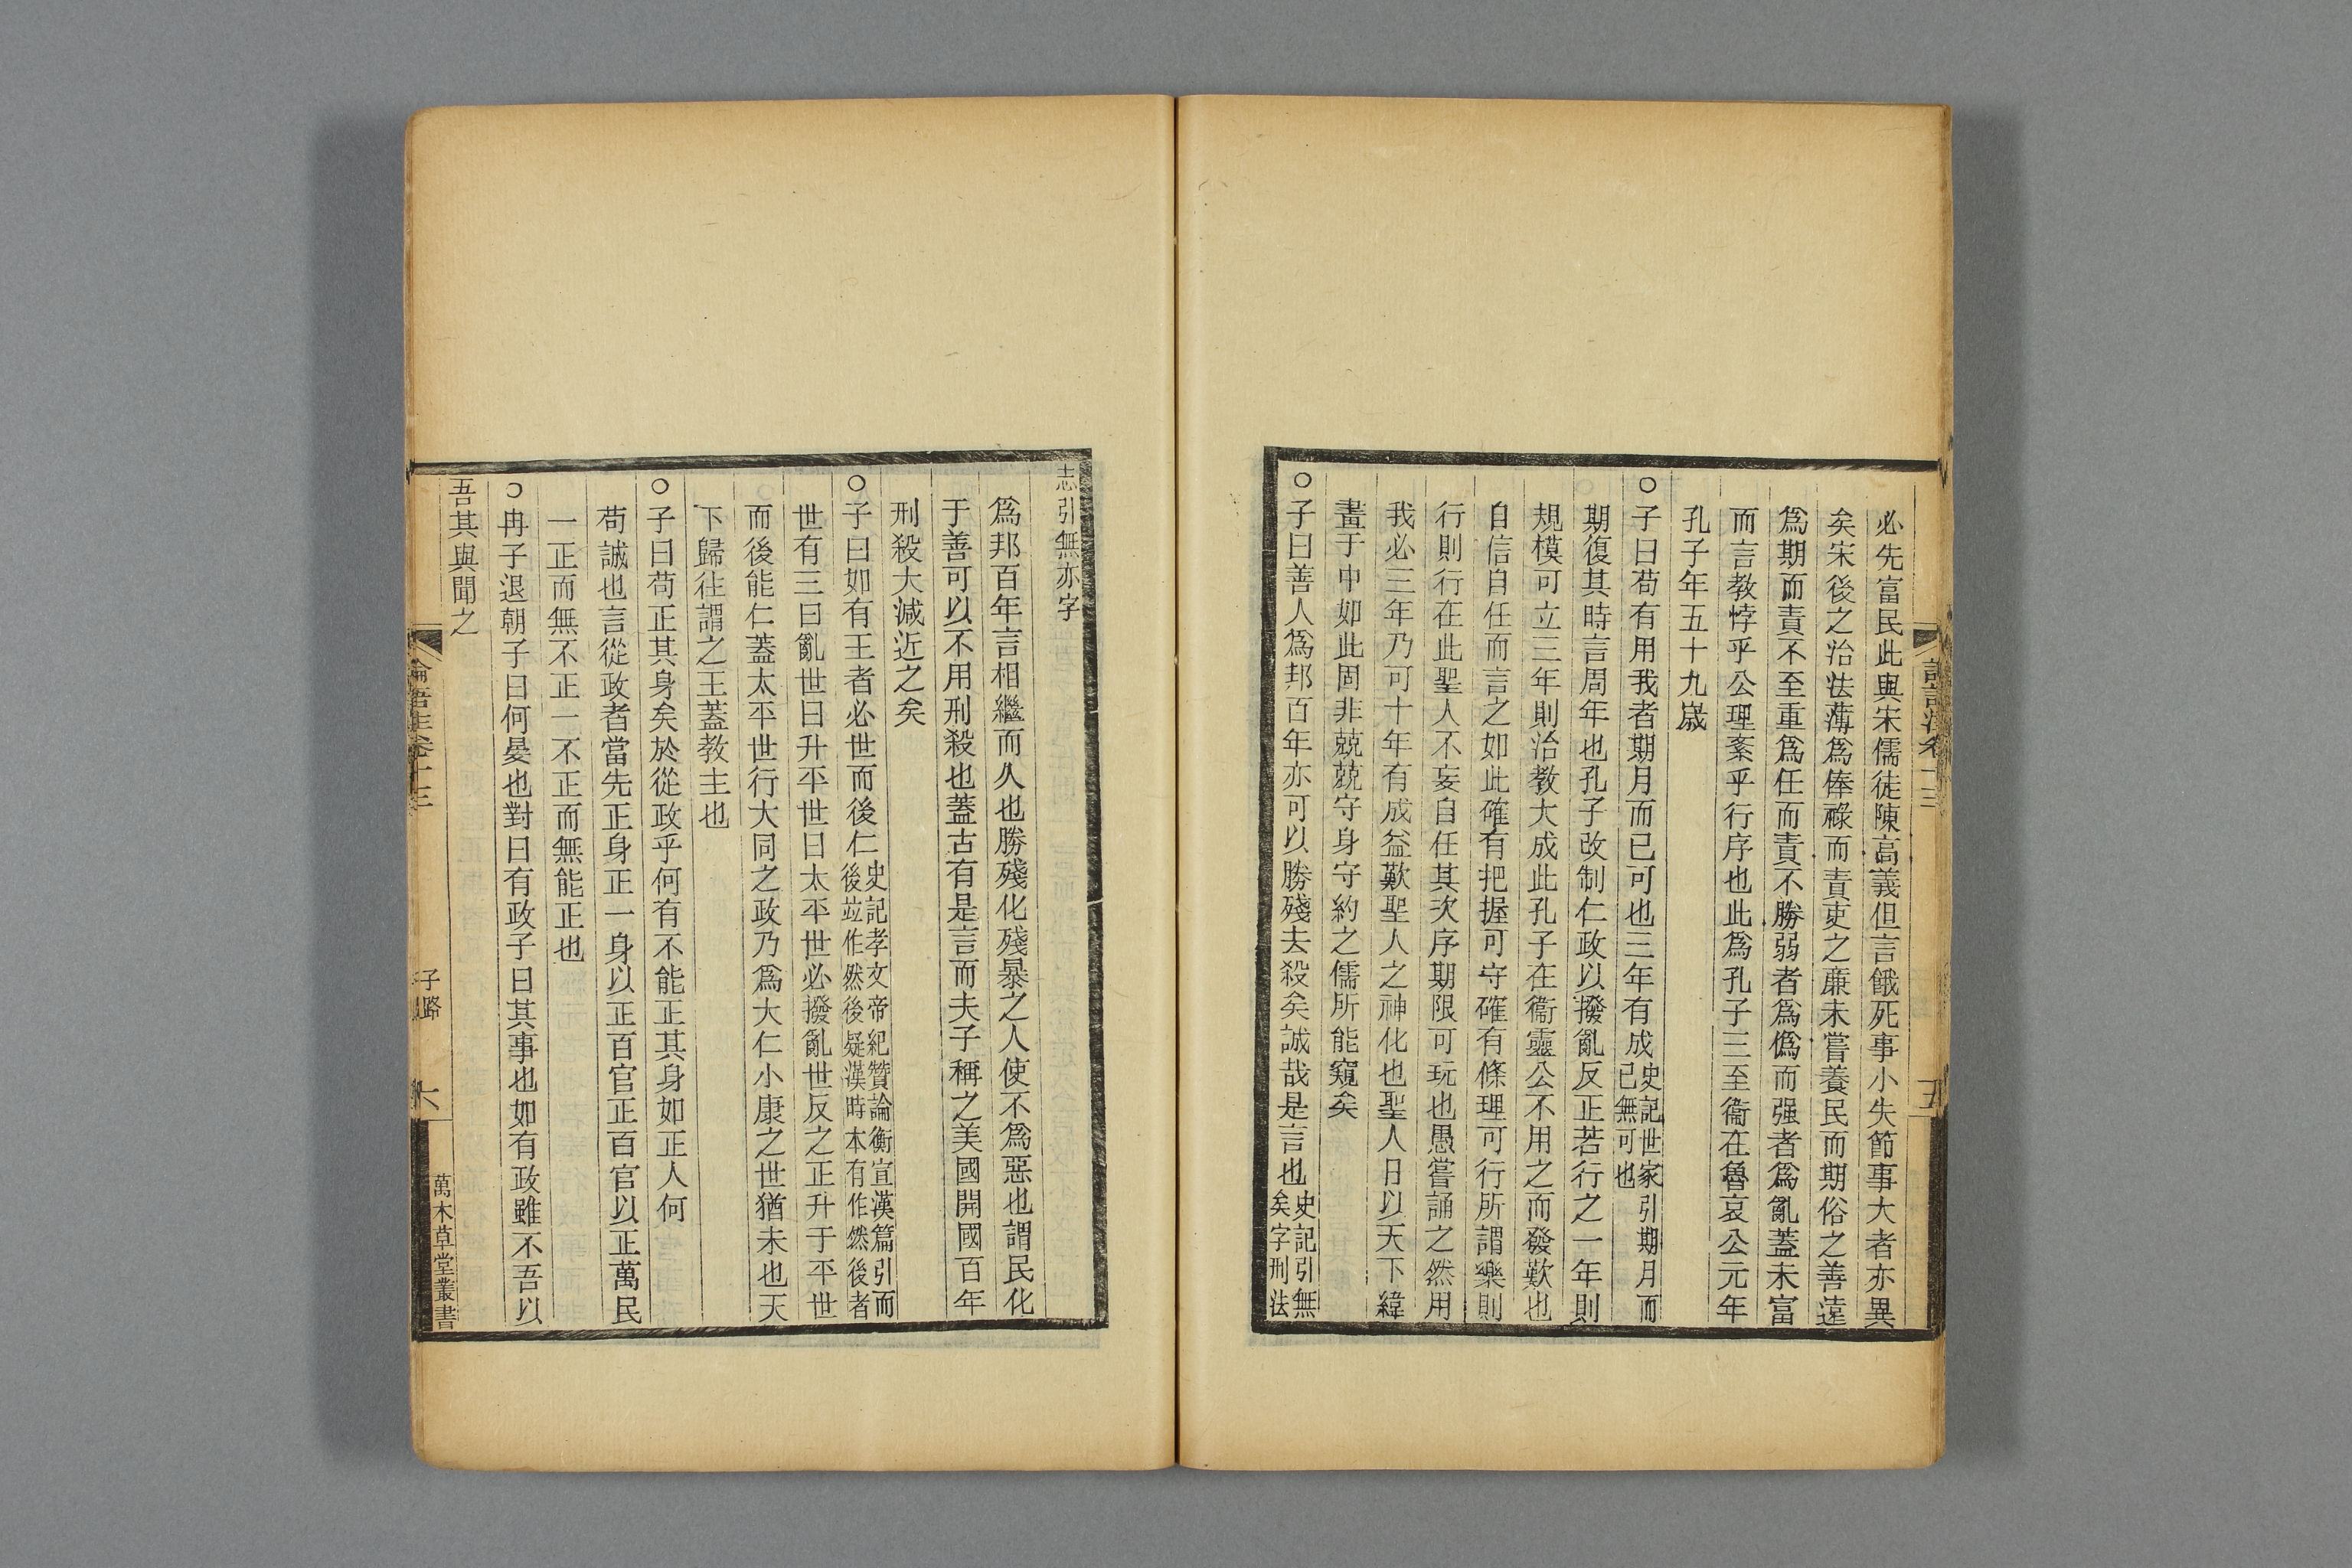 必先富民此與宋儒徒陳高義但言餓死事小失節事大者亦異
矣宋後之治法薄爲俸祿而責吏之廉未嘗養民而期俗之善遠
爲期而責不至重爲任而責不勝弱者爲僞而强者爲亂蓋未富
而言教悖乎公理紊乎行序也此爲孔子三至衞在魯哀公元年
孔子年五十九歲
○子曰苟有用我者期月而已可也三年有成史記世家引期月而已無可也
期復其時言周年也孔子改制仁政以撥亂反正若行之一年則
規模可立三年則治教大成此孔子在衞靈公不用之而發歎也
自信自任而言之如此確有把握可守確有條理可行所謂樂則
行則行在此聖人不妄自任其次序期限可玩也愚嘗誦之然用
我必三年乃可十年有成益歎聖人之神化也聖人日以天下緯
畫于中如此固非兢兢守身守約之儒所能窺矣
○子曰善人爲邦百年亦可以勝殘去殺矣誠哉是言也史記引無矣字刑法
志引無亦字
爲邦百年言相繼而久也勝殘化殘暴之人使不爲惡也謂民化
于善可以不用刑殺也蓋古有是言而夫子稱之美國開國百年
刑殺大減近之矣
○子曰如有王者必世而後仁史記孝文帝紀贊論衡宣漢篇引而後竝作然後疑漢時本有作然後者
世有三曰亂世曰升平世曰太平世必撥亂世反之正升于平世
而後能仁蓋太平世行大同之政乃爲大仁小康之世猶未也天
下歸往謂之王蓋教主也
○子曰苟正其身矣於從政乎何有不能正其身如正人何
苟誠也言從政者當先正身正一身以正百官正百官以正萬民
一正而無不正一不正而無能正也
○冉子退朝子曰何晏也對曰有政子曰其事也如有政雖不吾以
吾其與聞之
論語注卷十三
子路
六
萬木草堂叢書